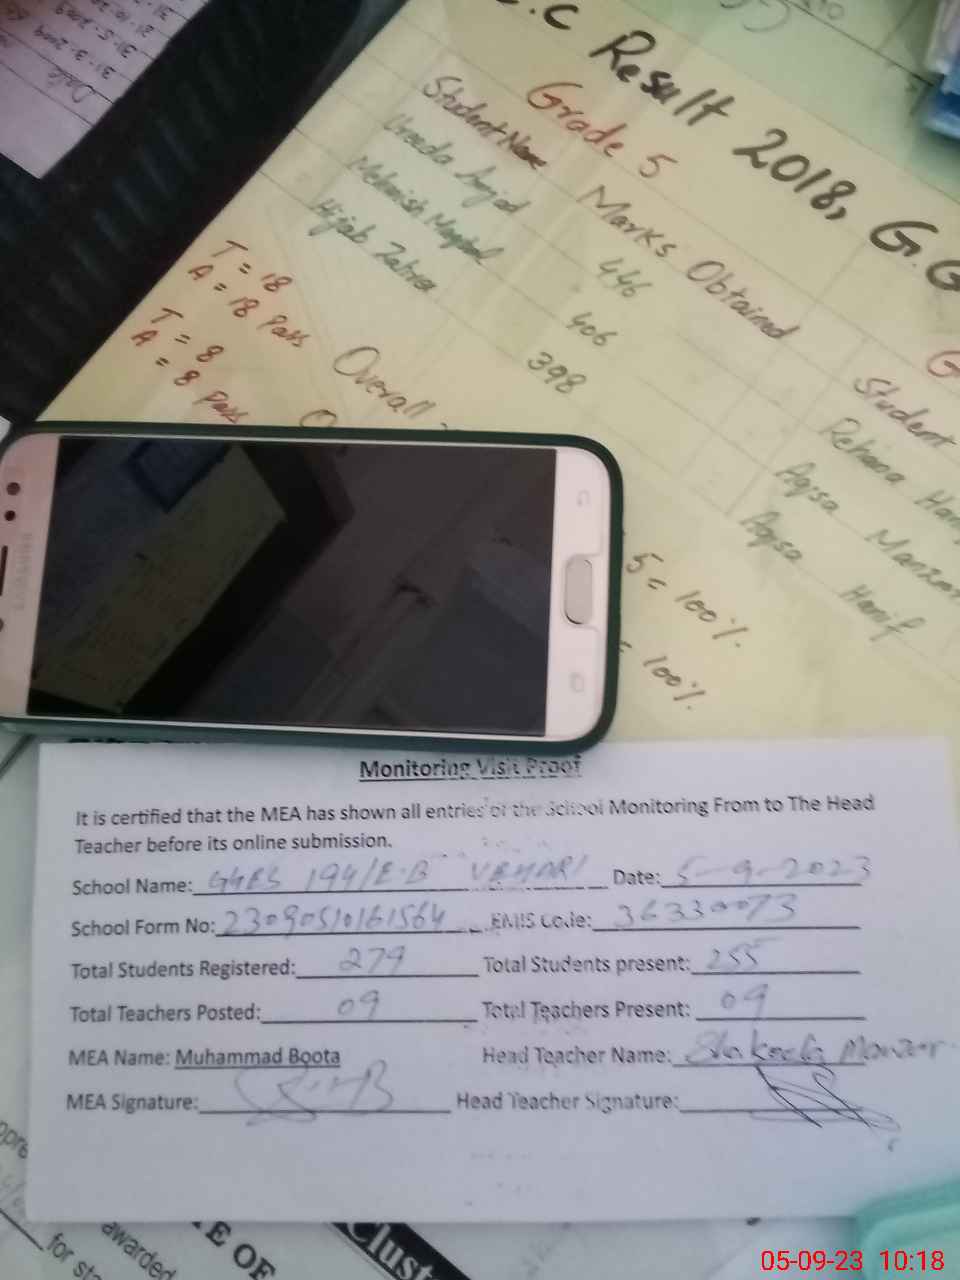 .C Result 2018, G.G
Grade 5
Student Name Marks Obtained
Ureeda Amjad 446
Mehwish Maqbol 406
Hijab Zahra 398
T = 18
A = 18 Pass
T = 8
A = 8 Pass
Overall
5 = 100%
= 100%
G
Student
Rehana Han
Aqsa Manzoor
Aqsa Hanif
Date
31-3-2009
SAMSUNG
Monitoring Visit Proof
It is certified that the MEA has shown all entries of the School Monitoring From to The Head
Teacher before its online submission.
School Name: GGES 194/E-B VEHARI Date: 5-9-2023
School Form No: 23090510161564 EMIS Code: 36330073
Total Students Registered: 279 Total Students present: 255
Total Teachers Posted: 09 Total Teachers Present: 09
MEA Name: Muhammad Boota Head Teacher Name: Shakeela Manzoor
MEA Signature: Head Teacher Signature:
for sta
awarded
E OF
Clust
05-09-23 10:18